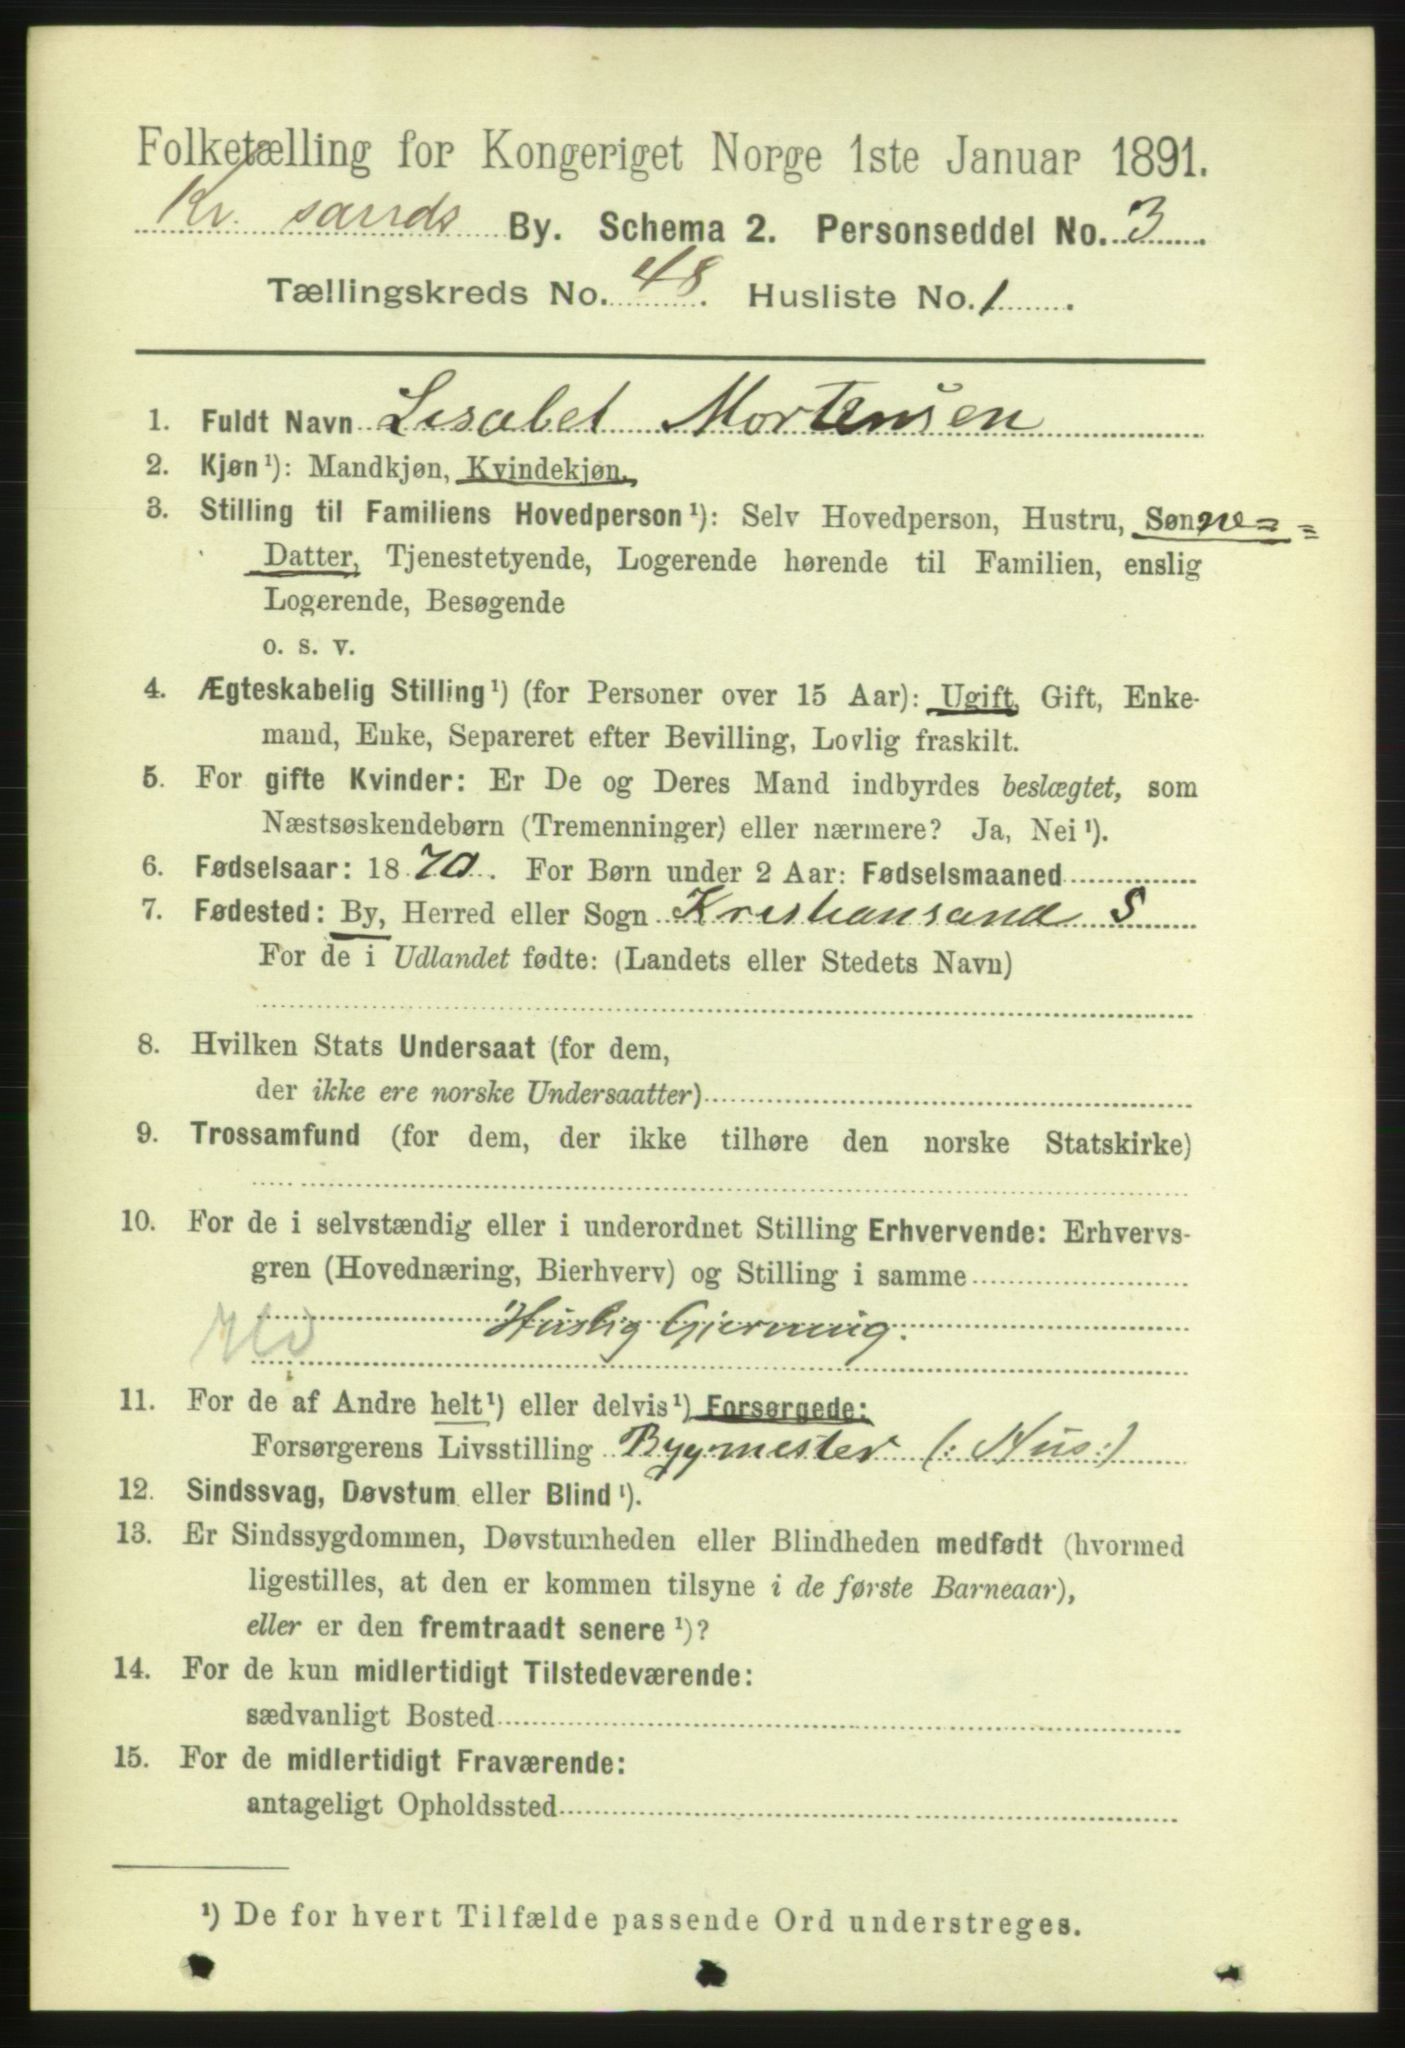 Folketælling for Kongeriget Norge 1ste Januar 1891.
Kr. sands By. Schema 2. Personseddel No. 3
Tællingskreds No. 48. Husliste No. 1.
1. Fuldt Navn Lisabet Mortensen
2. Kjøn¹): Mandkjøn, Kvindekjøn.
3. Stilling til Familiens Hovedperson¹): Selv Hovedperson, Hustru, Sønne=
Datter, Tjenestetyende, Logerende hørende til Familien, enslig
Logerende, Besøgende
o. s. v.
4. Ægteskabelig Stilling¹) (for Personer over 15 Aar): Ugift, Gift, Enke-
mand, Enke, Separeret efter Bevilling, Lovlig fraskilt.
5. For gifte Kvinder: Er De og Deres Mand indbyrdes beslægtet, som
Næstsøskendebørn (Tremenninger) eller nærmere? Ja, Nei¹).
6. Fødselsaar: 1870. For Børn under 2 Aar: Fødselsmaaned
7. Fødested: By, Herred eller Sogn Kristiansand S
For de i Udlandet fødte: (Landets eller Stedets Navn)
8. Hvilken Stats Undersaat (for dem,
der ikke ere norske Undersaatter)
9. Trossamfund (for dem, der ikke tilhøre den norske Statskirke)
10. For de i selvstændig eller i underordnet Stilling Erhvervende: Erhvervs-
gren (Hovednæring, Bierhverv) og Stilling i samme
Huslig Gjerning.
11. For de af Andre helt¹) eller delvis¹) Forsørgede:
Forsørgerens Livsstilling Bygmester (: Hus:)
12. Sindssvag, Døvstum eller Blind¹).
13. Er Sindssygdommen, Døvstumheden eller Blindheden medfødt (hvormed
ligestilles, at den er kommen tilsyne i de første Barneaar),
eller er den fremtraadt senere¹)?
14. For de kun midlertidigt Tilstedeværende:
sædvanligt Bosted
15. For de midlertidigt Fraværende:
antageligt Opholdssted
¹) De for hvert Tilfælde passende Ord understreges.